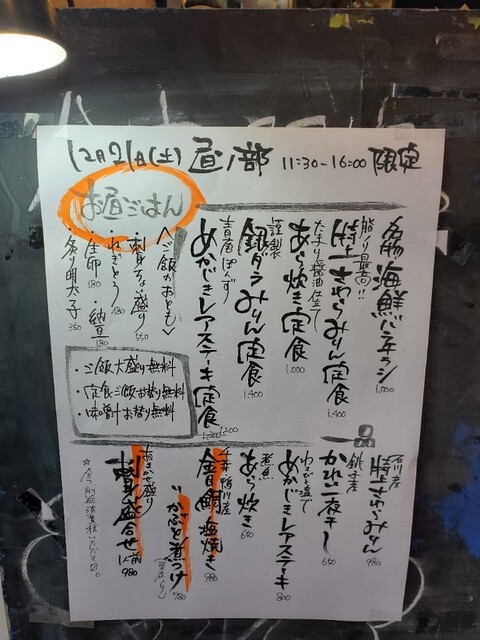 12月21日(土) 昼ノ部 11:30-16:00 限定
お昼ごはん
名物 海鮮バラチラシ
1,000
脂ノリ最高!!
特上さわらみりん定食
1,400
たまり醤油仕立て
あら炊き定食
1,000
謹製
銀ダラみりん定食
1,400
青唐ぽんず
めかじきレアステーキ定食
1,200
<ご飯がおとも>
550
・ねぎとろ
480
・生卵
180
・納豆
180
・炙り明太子
350
・ご飯大盛り無料
・定食ご飯お替り無料
・味噌汁お替り無料
一品
石川産
特上さわらみりん
980
銚子産
かれい一夜干し
650
わさび
めかじきレアステーキ
800
煮魚
あら炊き
650
千葉・鴨川産
金目鯛塩焼き
980
かぶと煮つけ
780
おまかせ盛り
刺身盛合せ
1人前
980